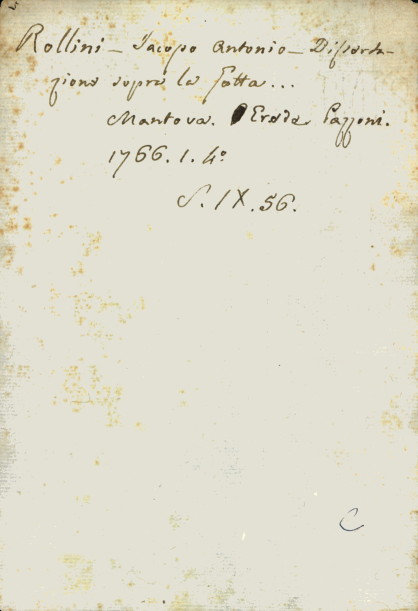 Rollini - Jacopo Antonio - Disserta-
zione sopra la Gotta...
Mantova. Erede Pazzoni.
1766. 1. 4º
S. IX. 56.
C